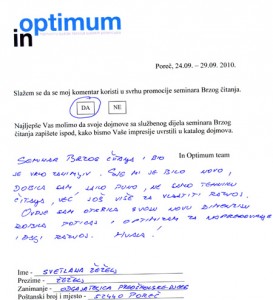 optimum
in
Poreč, 24.09. – 29.09. 2010.
Slažem se da se moj komentar koristi u svrhu promocije seminara Brzog čitanja.
DA NE
Najljepše Vas molimo da svoje dojmove sa službenog dijela seminara Brzog
čitanja zapišete ispod, kako bismo Vaše impresije uvrstili u katalog dojmova.
In Optimum team
SEMINAR BRZOG ČITANJA BIO
JE VRLO ZANIMLJIV. SVE MI JE BILO NOVO,
DOBILA SAM JAKO PUNO, NE SAMO TEHNIKU
ČITANJA, VEĆ JOŠ VIŠE ZA VLASTITI RAZVOJ.
OVDJE SAM OTKRILA SVOJU NOVU DIMENZIJU
DOBILA POTICAJ I OPTIMIZAM ZA NAPREDOVANJE
I DALJI RAZVOJ. HVALA!
Ime - SVETLANA
Prezime -
Zanimanje - ODGAJATELJICA PREDŠKOLSKE DJECE
Poštanski broj i mjesto - 52440 POREČ